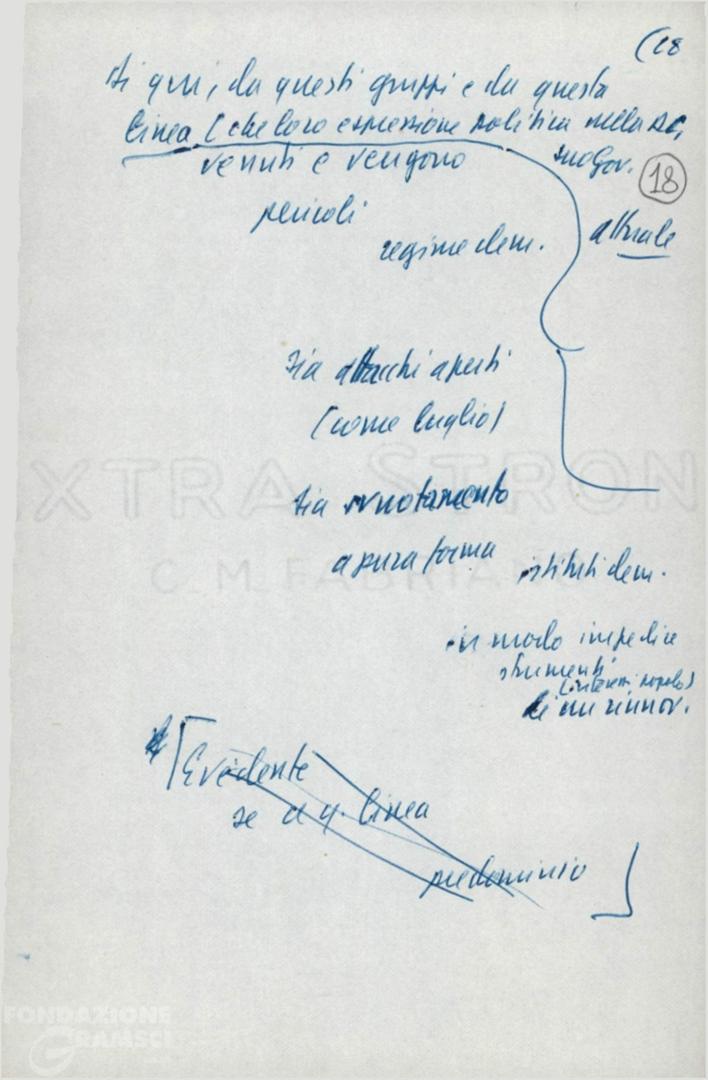 (18
di qui, da questi gruppi e da questa
linea (che loro espressione politica nella DC,
suo Gov.
venuti e vengono
18
attuale
pericoli
regime dem.
sia attacchi aperti
(come luglio)
sia svuotamento
a pura forma
istituti dem.
in modo impedire
strumenti
(interessi popolo)
di un rinnov.
Evidente
se a q. linea
predominio
EXTRA STRON
C. M. FABRIANO
FONDAZIONE
GRAMSCI